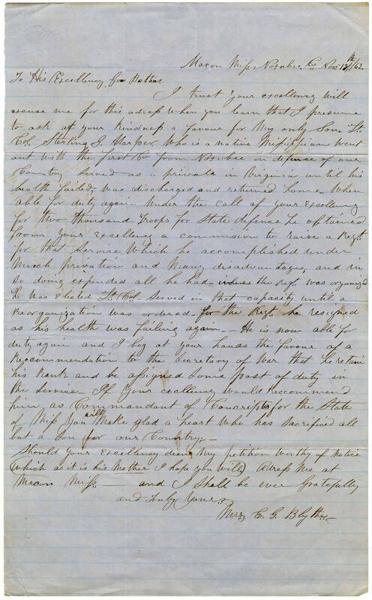 Macon Miss Noxubee Co Nov 12th/62
To His Excellency Gov Pettus
I trust your excellency will
excuse me for this adress when you learn that I presume
to ask of your kindness a favour for My only Son Lt
Col Sterling Harper. Who is a native Mississippian went
out with the first Co from Noxubee in defense of our
Country served as a private in Virginia until his
health failed, was discharged and returned home. When
able for duty again Under the call of your excellency
for two thousand troops for State defense he obtained
from your excellency a commission to raise a Regt
for that service Which he accomplished under
Much privation and Many disadvantages, and in
so doing expended all he had, when the Regt was organized
he was elected Lt Col served in that capacity until a
reorganization was ordered for the Regt he resigned
as his health was failing again - He is now able for
duty again and I beg at your hands the favor of a
Recommendation to the Secretary of War that he retain
his rank and be assigned some post of duty in
the service If your excellency would recommend
him as Commandant of Conscripts for the State
of Miss You will Make glad a heart Who has sacrificed all
but a Son for our Country -
Should your Excellency deem My petition worthy of Notice
(which as it is his Mother I hope you will) Adress Me at
Macon Miss - and I shall be ever Gratefully
and truly Yours
Mrs E. G. Blythe